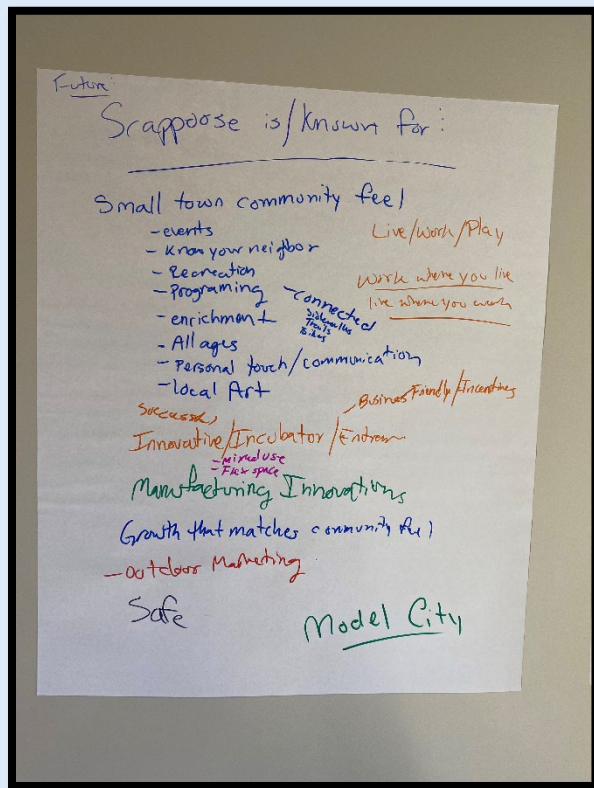 Future:
Scappoose is/known for:
Small town community feel
- events
- Know your neighbor
- Recreation
- Programing
- enrichment
- All ages
- Personal touch/communication
- local Art
- connected
Sidewalks
Trails
Bikes
Live/Work/Play
Work where you live
live where you work
Successful
- Business Friendly/Incentives
Innovative/Incubator/Entrem
- Mixed use
- Flex space
Manufacturing Innovations
Growth that matches community feel
- Outdoor Marketing
Safe
Model City